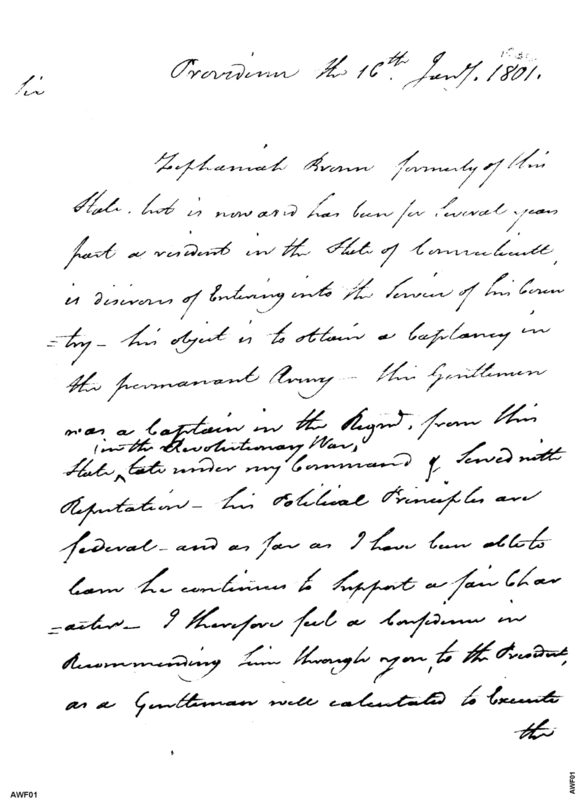 Providence the 16th. Jany. 1801.
Sir
Zephaniah Brown formerly of this
State. but is now and has been for Several years
past a resident in the State of Connecticutt,
is disirous of Entering into the Service of his Coun
=try - his object is to obtain a Captancy in
the permanant Army - this Gentleman
was a Captain in the Regmt. from this
in the Revolutionary War,
State, late under my Command & Served with
Reputation - his Political Principles are
federal - and as far as I have been able to
learn he continues to Support a fair Char
=acter - I therefore feel a Confidence in
Recommending him through you, to the President,
as a Gentleman well calculated to Execute
the
AWF01
AWF01